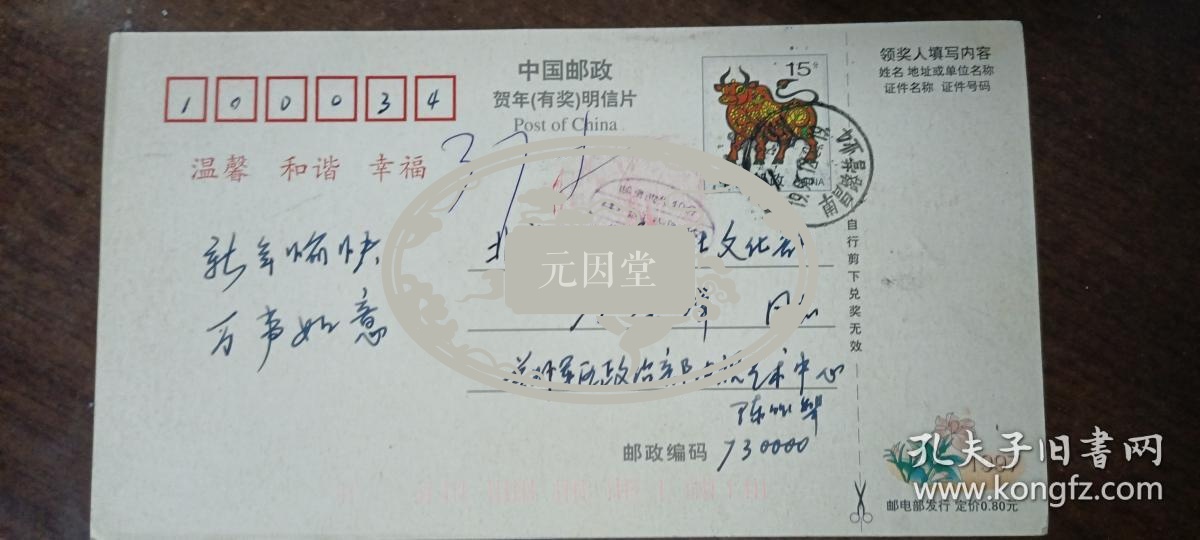 100034
中国邮政
贺年(有奖)明信片
Post of China
15分
领奖人填写内容
姓名 地址或单位名称
证件名称 证件号码
温馨 和谐 幸福
新年愉快
万事如意
文化部
同志
元因堂
兰州军区政治部电视艺术中心
邮政编码 730000
自行剪下兑奖无效
1997
邮电部发行 定价0.80元
孔夫子旧书网
www.kongfz.com